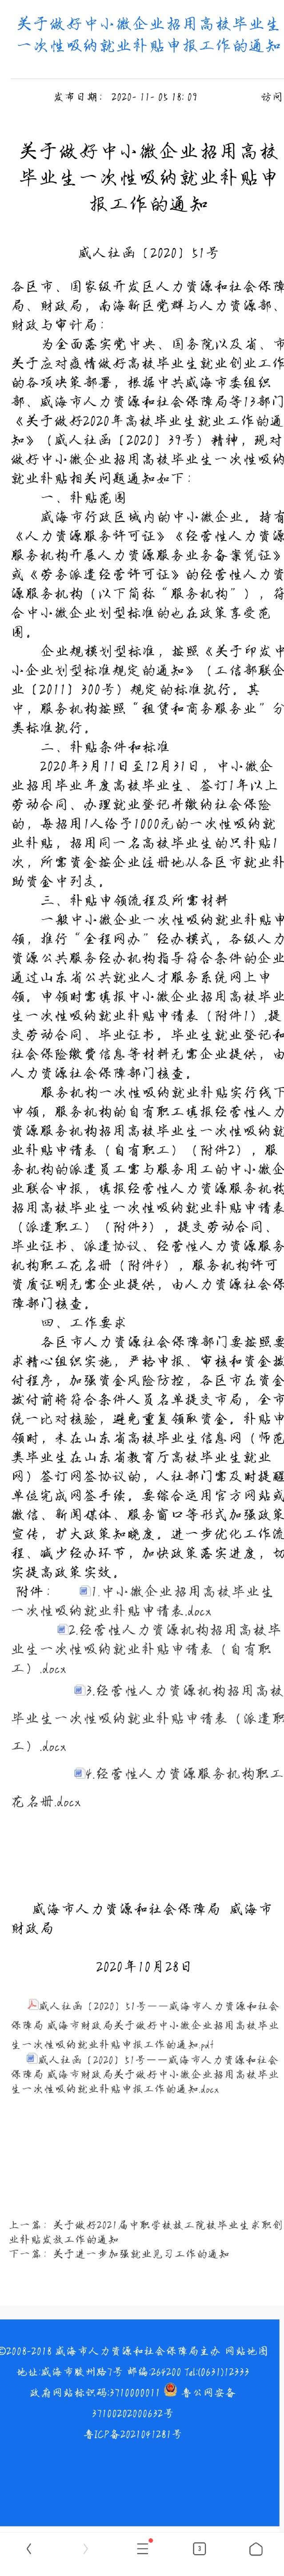 关于做好中小微企业招用高校毕业生
一次性吸纳就业补贴申报工作的通知
发布日期：2020-11-05 18:09
访问
关于做好中小微企业招用高校
毕业生一次性吸纳就业补贴申
报工作的通知
威人社函〔2020〕51号
各区市、国家级开发区人力资源和社会保障
局、财政局，南海新区党群与人力资源部、
财政与审计局：
为全面落实党中央、国务院以及省、市
关于应对疫情做好高校毕业生就业创业工作
的各项决策部署，根据中共威海市委组织
部、威海市人力资源和社会保障局等13部门
《关于做好2020年高校毕业生就业工作的通
知》（威人社函〔2020〕39号）精神，现对
做好中小微企业招用高校毕业生一次性吸纳
就业补贴相关问题通知如下：
一、补贴范围
威海市行政区域内的中小微企业。持有
《人力资源服务许可证》《经营性人力资源
服务机构开展人力资源服务业务备案凭证》
或《劳务派遣经营许可证》的经营性人力资
源服务机构（以下简称“服务机构”），符
合中小微企业划型标准的也在政策享受范
围。
企业规模划型标准，按照《关于印发中
小企业划型标准规定的通知》（工信部联企
业〔2011〕300号）规定的标准执行。其
中，服务机构按照“租赁和商务服务业”分
类标准执行。
二、补贴条件和标准
2020年3月11日至12月31日，中小微企
业招用毕业年度高校毕业生、签订1年以上
劳动合同、办理就业登记并缴纳社会保险
的，每招用1人给予1000元的一次性吸纳就
业补贴，招用同一名高校毕业生的只补贴1
次，所需资金按企业注册地从各区市就业补
助资金中列支。
三、补贴申领流程及所需材料
一般中小微企业一次性吸纳就业补贴申
领，推行“全程网办”经办模式，各级人力
资源公共服务经办机构指导符合条件的企业
通过山东省公共就业人才服务系统网上申
领。申领时需填报中小微企业招用高校毕业
生一次性吸纳就业补贴申请表（附件1）,提
交劳动合同、毕业证书。毕业生就业登记和
社会保险缴费信息等材料无需企业提供，由
人力资源社会保障部门核查。
服务机构一次性吸纳就业补贴实行线下
申领，服务机构的自有职工填报经营性人力
资源服务机构招用高校毕业生一次性吸纳就
业补贴申请表（自有职工）（附件2），服
务机构的派遣员工需与服务用工的中小微企
业联合申报，填报经营性人力资源服务机构
招用高校毕业生一次性吸纳就业补贴申请表
（派遣职工）（附件3），提交劳动合同、
毕业证书、派遣协议、经营性人力资源服务
机构职工花名册（附件4），服务机构许可
资质证明无需企业提供，由人力资源社会保
障部门核查。
四、工作要求
各区市人力资源社会保障部门要按照要
求精心组织实施，严格申报、审核和资金拨
付程序，加强资金风险防控，各区市在资金
拨付前将符合条件人员名单提交市局，全市
统一比对核验，避免重复领取资金。补贴申
领时，未在山东省高校毕业生信息网（师范
类毕业生在山东省教育厅高校毕业生就业
网）签订网签协议的，人社部门需及时提醒
单位完成网签手续。要综合运用官方网站或
微信、新闻媒体、服务窗口等形式加强政策
宣传，扩大政策知晓度。进一步优化工作流
程、减少经办环节，加快政策落实进度，切
实提高政策实效。
附件： 1.中小微企业招用高校毕业生
一次性吸纳就业补贴申请表.docx
2.经营性人力资源机构招用高校毕
业生一次性吸纳就业补贴申请表（自有职
工）.docx
3.经营性人力资源机构招用高校
毕业生一次性吸纳就业补贴申请表（派遣职
工）.docx
4.经营性人力资源服务机构职工
花名册.docx
威海市人力资源和社会保障局 威海市
财政局
2020年10月28日
威人社函〔2020〕51号——威海市人力资源和社会
保障局 威海市财政局关于做好中小微企业招用高校毕业
生一次性吸纳就业补贴申报工作的通知.pdf
威人社函〔2020〕51号——威海市人力资源和社会
保障局 威海市财政局关于做好中小微企业招用高校毕业
生一次性吸纳就业补贴申报工作的通知.docx
上一篇：关于做好2021届中职学校技工院校毕业生求职创
业补贴发放工作的通知
下一篇：关于进一步加强就业见习工作的通知
©2008-2018 威海市人力资源和社会保障局主办 网站地图
地址:威海市胶州路7号 邮编:264200 Tel:(0631)12333
政府网站标识码:3710000011 鲁公网安备
37100202000632号
鲁ICP备2021041281号
3